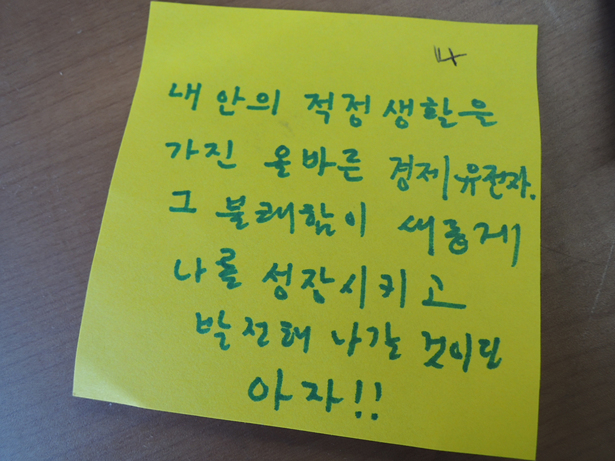 4
내 안의 적정 생활을
가진 올바른 경제유전자.
그 불패함이 새롭게
나를 성장시키고
발전해 나갈 것이다
아자!!